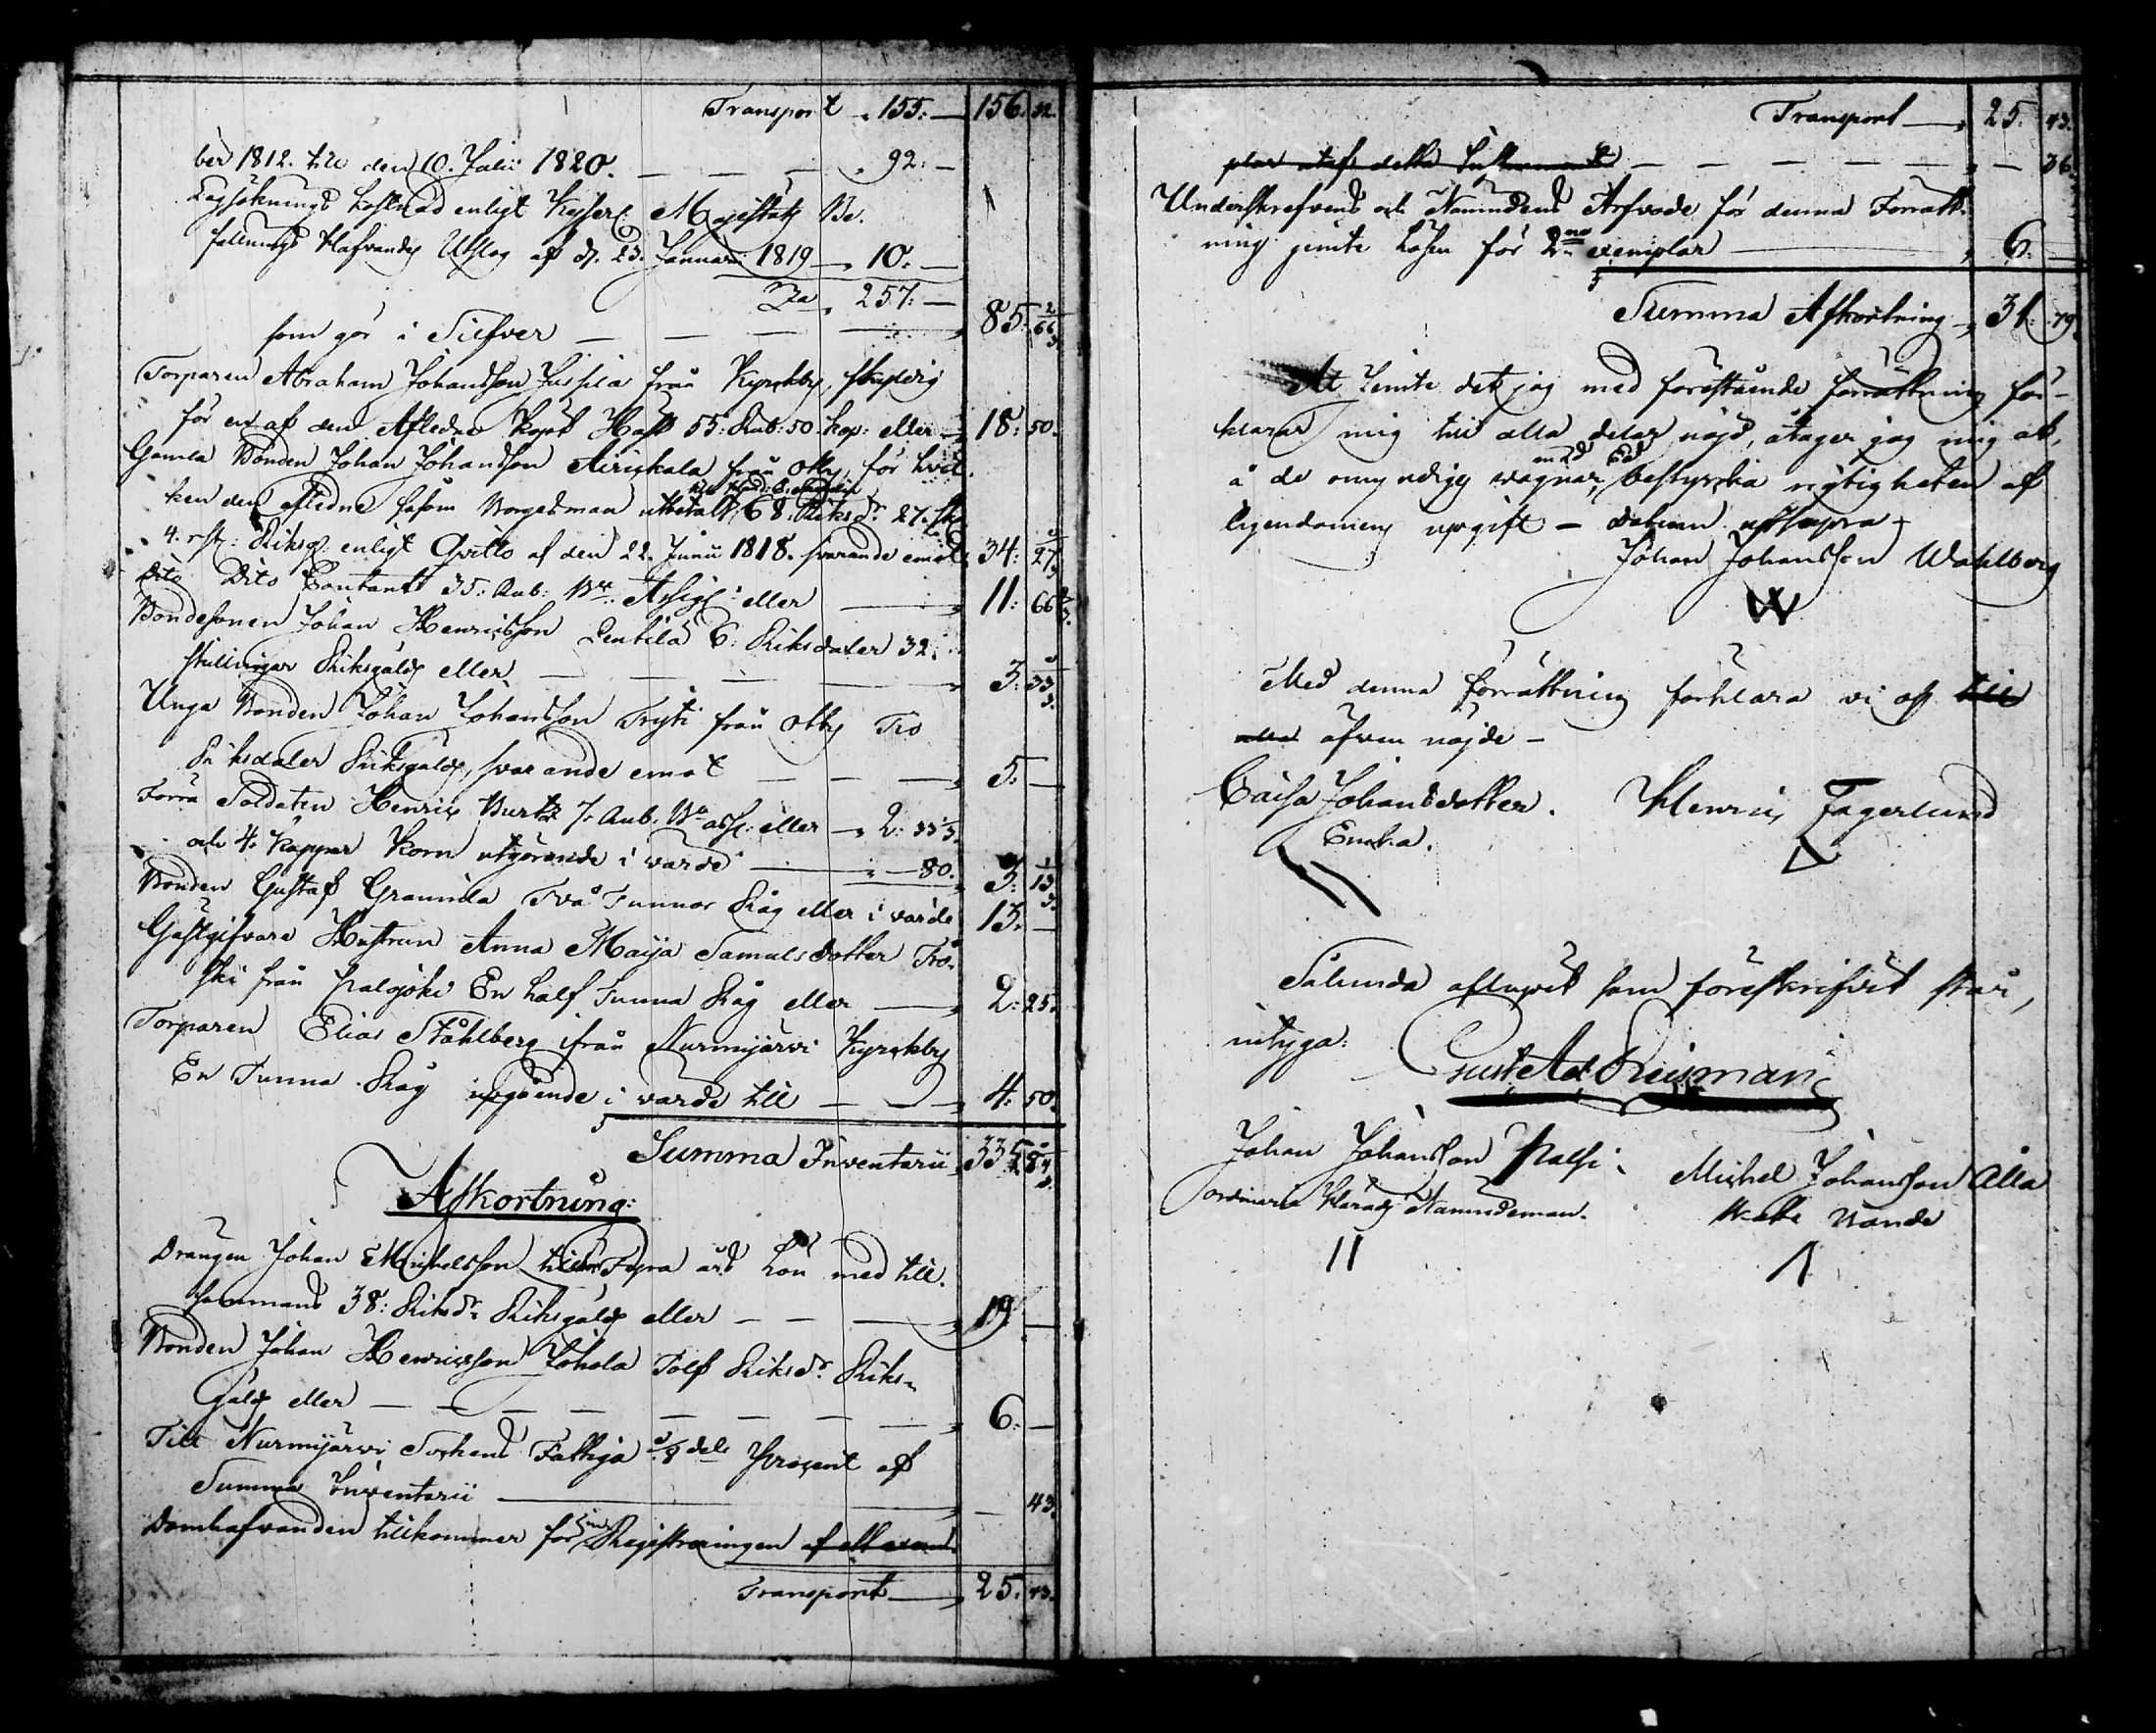 Transport „ 155: — 156. 32.
ber 1812. till den 10. Julii 1820. — — — „ 92: —
Lagsöknings kostnad enligt Kejserl: Majestäts Be-
fallnings Hafvandes Utslag af d. 23. Januarii 1819 — „ 10. —
Sa „ 257: —
som gör i Silfver — — — — 85: 66 2/3
Torparen Abraham Johansson Jussila från Kyrkby, skyldig
för en af den Aflidne köpt Häst 55: Rub: 50. kop: eller „ 18: 50.
Gamla Bonden Johan Johansson Airikala från Otby, för hvil-
ken den aflidne såsom Borgesman utbetalt 68. Riksdr. 27. sk.
4. rst: Riksg: enligt Qvitto af den 22. Junii 1818. svarande emot 34: 27
Dito Dito Contant 35: Rub: Bco: Assig: eller — „ 11: 66 2/3.
Bondesonen Johan Henricsson Lentila 6. Riksdaler 32.
skillingar Riksgälds eller — — — — „ 3: 33
Unga Bonden Johan Johansson Tryti från Otby Tio
Riksdaler Riksgälds, svarande emot — — — „ 5. —
Förra Soldaten Henric Burk 7. Rub. Bco ass: eller — „ 2: 33 1/3.
och 4. Kappar Korn utgörande i värde — „ — 80. „ 3: 13 1/3
Bonden Gustaf Grannila Två Tunnor Råg eller i värde 13. —
Gästgifvare Hustrun Anna Maija Samuelsdotter
från Palojoki En half Tunna Råg eller — „ 2: 25.
Torparen Elias Ståhlberg ifrån Nurmijärvi Kyrkby
En Tunna Råg upgående i värde till — — „ 4: 50.
Summa Inventarii 335 84
Afkortning:
Drängen Johan Michelsson till Fyra års Lön med till-
sammans 38: Riksdr Riksgälds eller — — — „ 19. —
Bonden Johan Henricsson Johola Tolf Riksdr. Riks-
Gälds eller — — — — — — — „ 6: —
Till Nurmijärvi Sockens Fattiga 1/8 dels Procent af
Summa Inventarii — — „ — 43.
Domhafvanden tillkommer för Registreringen af ett exem-
Transport — „ 25. 43.
Transport — „ 25. 43.
plar utaf detta Instrument — — — — — — „ — 36.
Underskrefvens och Nämndens Arfvode för denna Förrätt-
ning jemte Lösen för 2ne exemplar — „ 6: —
Summa Afkortning „ 31: 79.
At jemte det jag med förestående förrättning för-
klarar mig till alla delar nöjd, åtager jag mig att,
å de omyndiges vägnar, med Ed bestyrka rigtigheten af
Egendomens upgift — datum utsupra —
Johan Johansson Wahlberg
W
Med denna förrättning förklara vi oss till
alla äfven nöjde —
Caisa Johansdotter. Henric Fagerlund
Enka.
Sålunda aflupit som föreskrifvit står,
intyga:
Gust Ad Ruisman
Johan Johansson Palsi. Michel Johansson Alla
ordinarie Härads Nämndeman. Bonde